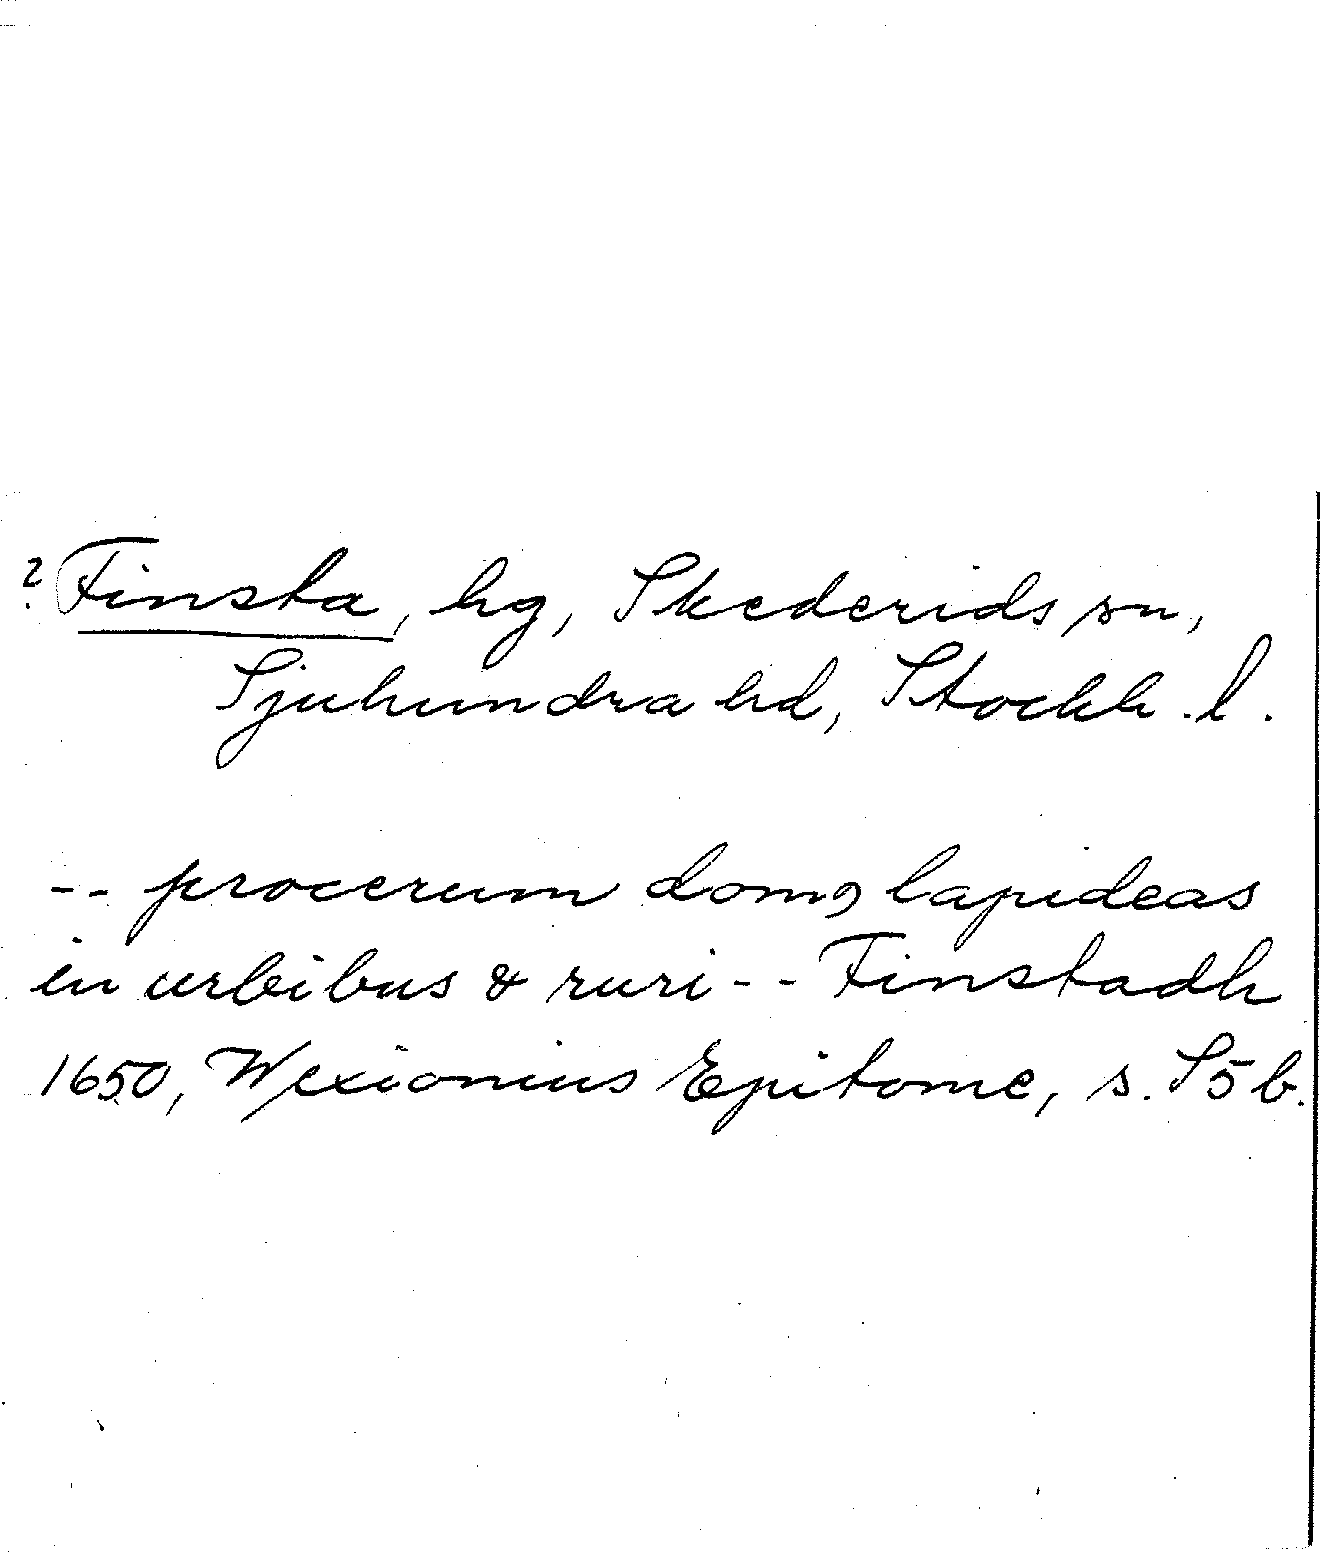 ? Finsta, hg, Skederids sn,
Sjuhundra hd, Stockh. l.
-- procerum domꝯ lapideas
in urbibus & ruri -- Finstadh
1650, Wexionius Epitome, s. S5b.